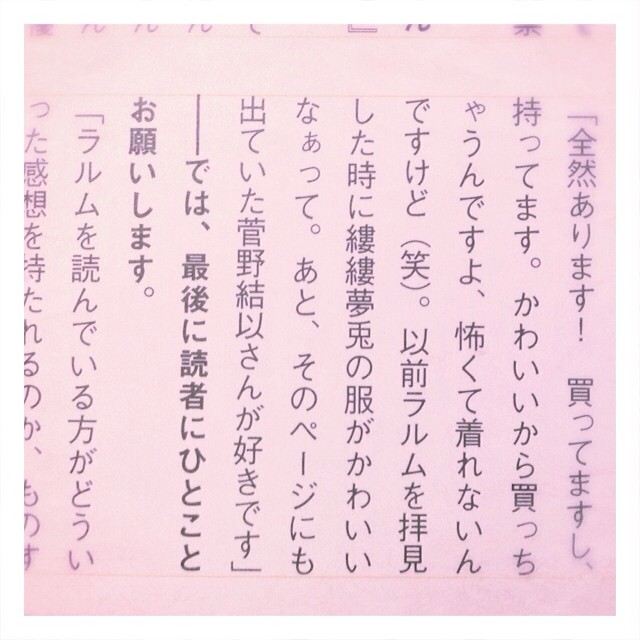 「全然あります！　買ってますし、
持ってます。かわいいから買っち
ゃうんですよ、怖くて着れないん
ですけど（笑）。以前ラルムを拝見
した時に縷縷夢兎の服がかわいい
なぁって。あと、そのページにも
出ていた菅野結以さんが好きです」
――では、最後に読者にひとこと
お願いします。
「ラルムを読んでいる方がどうい
った感想を持たれるのか、ものす